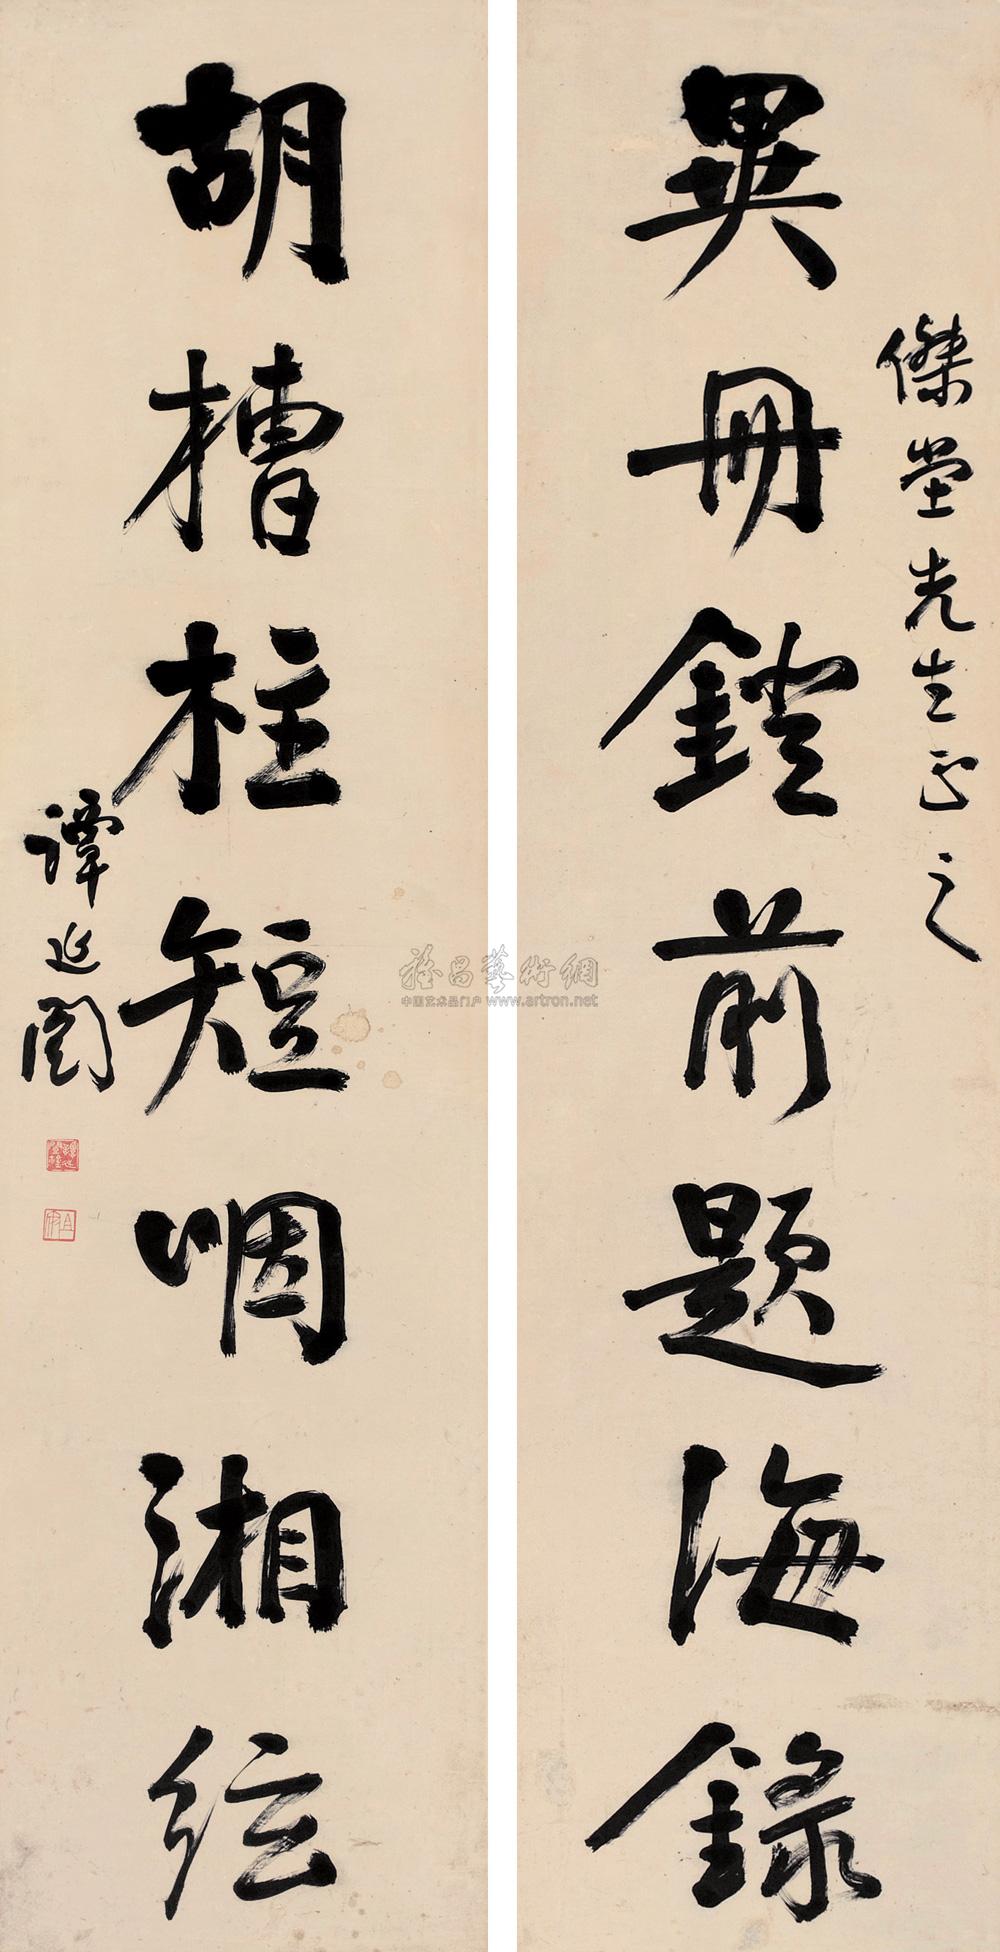 傑堂先生正之
異冊鐙前題海錄
胡槽柱短㘢湘絃
譚延闓
雅昌藝術網
中国艺术品门户 www.artron.net